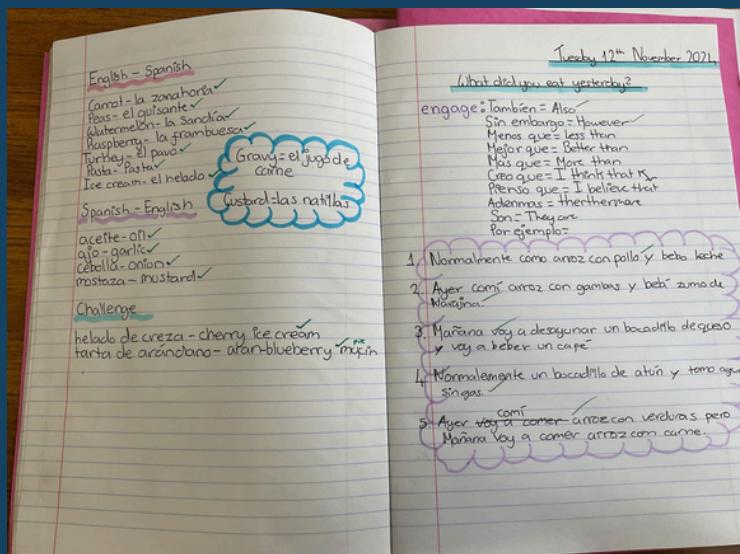 English - Spanish
Carrot - la zanahoria
Peas - el guisante
Watermelon - la sandía
Raspberry - la frambuesa
Turkey - el pavo
Pasta - Pasta
Ice cream - el helado
Gravy = el jugo de
carne
Custard = las natillas
Spanish - English
aceite - oil
ajo - garlic
cebolla - onion
mostaza - mustard
Challenge
helado de creza - cherry ice cream
tarta de arándano - blueberry
Tuesday 12th November 2024
What did you eat yesterday?
engage: También = Also
Sin embargo = However
Menos que = Less than
Mejor que = Better than
Más que = More than
Creo que = I think that
Pienso que = I believe that
Adenmas = therthermore
Son = They are
Por ejemplo =
1. Normalmente como arroz con pollo y bebo leche
2. Ayer comí arroz con gambas y bebí zumo de
Narajna.
3. Mañana voy a desayunar un bocadillo de queso
y voy a beber un café
4. Normalemente un bocadillo de atún y tomo agua
sin gas.
comí
5. Ayer voy a comer arroz con verduras pero
Mañana voy a comer arroz com carne.